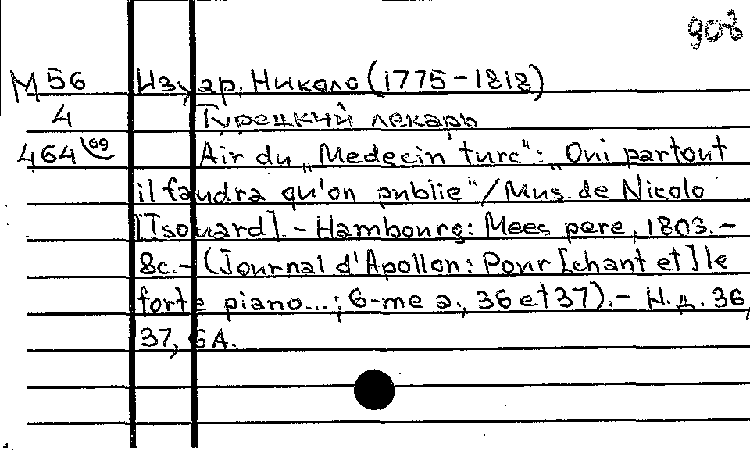 908
М 56 Изуар, Николо (1775-1818)
4 Турецкий лекарь
464 69 Air du „Medecin turc": „Oui partout
il faudra qu'on publie"/Mus. de Nicolo
[Isouard]. - Hambourg: Mees pere, 1803. -
8c. - (Journal d'Apollon: Pour [chant et] le
forte piano...; 6-me a., 36 et 37). - Н.д. 36,
37, 6A.